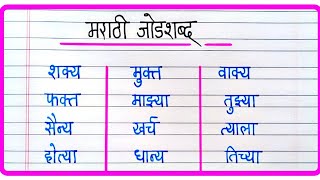 मराठी जोडशब्द
शक्य मुक्त वाक्य
फक्त माझ्या तुझ्या
सैन्य खर्च त्याला
होत्या धान्य तिच्या